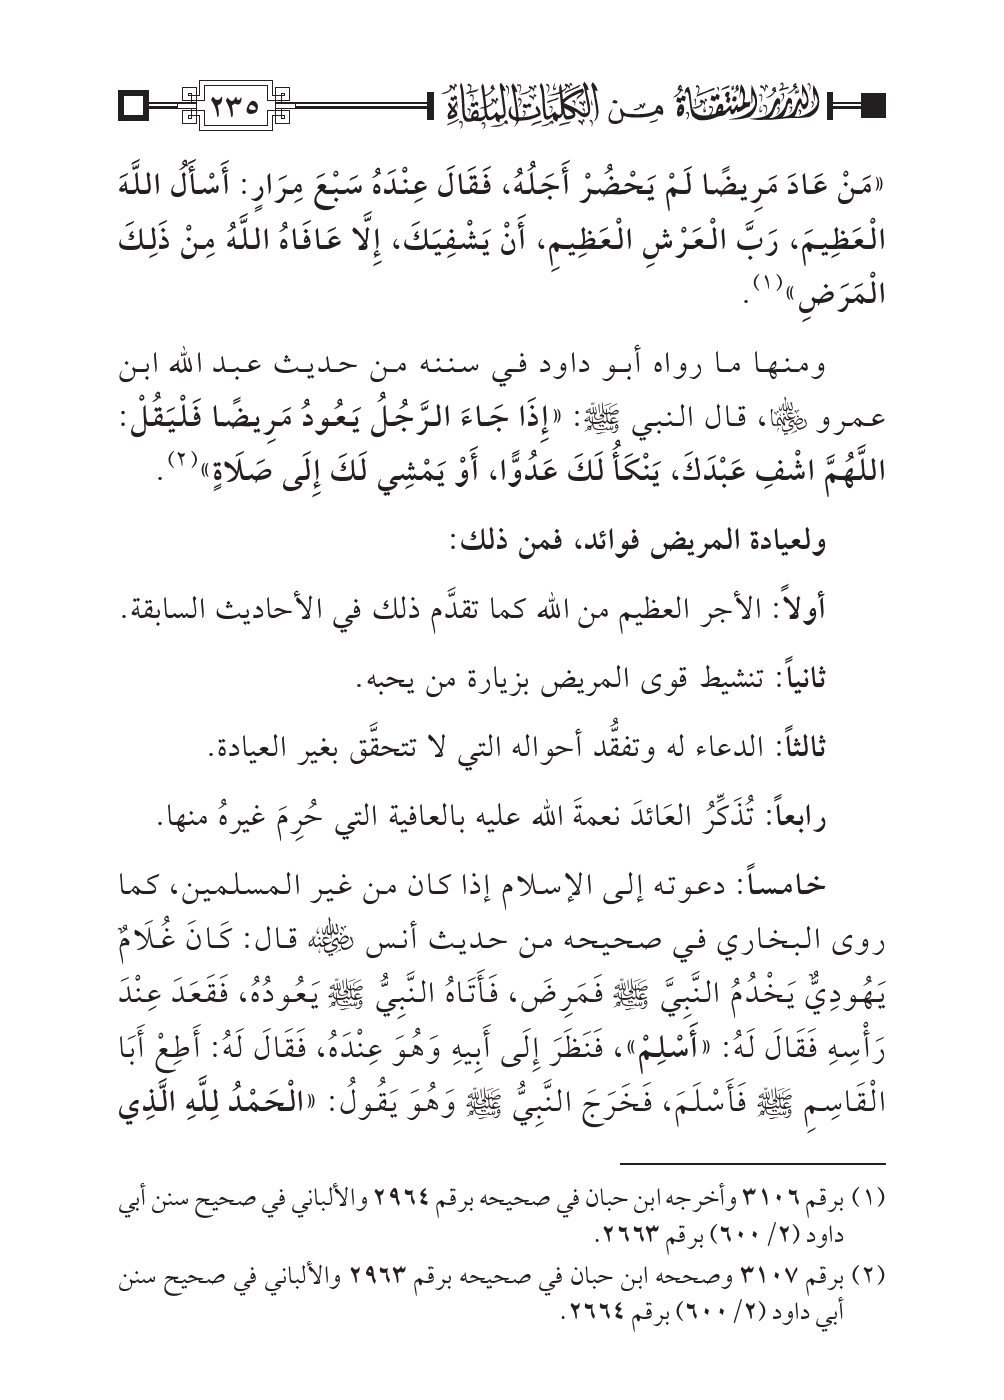 الدرر المنتقاة من الكلمات الملقاة
٢٣٥
«مَنْ عَادَ مَرِيضًا لَمْ يَحْضُرْ أَجَلُهُ، فَقَالَ عِنْدَهُ سَبْعَ مِرَارٍ: أَسْأَلُ اللَّهَ
الْعَظِيمَ، رَبَّ الْعَرْشِ الْعَظِيمِ، أَنْ يَشْفِيَكَ، إِلَّا عَافَاهُ اللَّهُ مِنْ ذَلِكَ
الْمَرَضِ»(١).
ومنها ما رواه أبو داود في سننه من حديث عبد الله ابن
عمرو رضي الله عنهما، قال النبي ﷺ: «إِذَا جَاءَ الرَّجُلُ يَعُودُ مَرِيضًا فَلْيَقُلْ:
اللَّهُمَّ اشْفِ عَبْدَكَ، يَنْكَأُ لَكَ عَدُوًّا، أَوْ يَمْشِي لَكَ إِلَى صَلَاةٍ»(٢).
ولعيادة المريض فوائد، فمن ذلك:
أولاً: الأجر العظيم من الله كما تقدَّم ذلك في الأحاديث السابقة.
ثانياً: تنشيط قوى المريض بزيارة من يحبه.
ثالثاً: الدعاء له وتفقُّد أحواله التي لا تتحقَّق بغير العيادة.
رابعاً: تُذَكِّرُ العَائدَ نعمةَ الله عليه بالعافية التي حُرِمَ غيرهُ منها.
خامساً: دعوته إلى الإسلام إذا كان من غير المسلمين، كما
روى البخاري في صحيحه من حديث أنس رضي الله عنه قال: كَانَ غُلَامٌ
يَهُودِيٌّ يَخْدُمُ النَّبِيَّ ﷺ فَمَرِضَ، فَأَتَاهُ النَّبِيُّ ﷺ يَعُودُهُ، فَقَعَدَ عِنْدَ
رَأْسِهِ فَقَالَ لَهُ: «أَسْلِمْ»، فَنَظَرَ إِلَى أَبِيهِ وَهُوَ عِنْدَهُ، فَقَالَ لَهُ: أَطِعْ أَبَا
الْقَاسِمِ ﷺ فَأَسْلَمَ، فَخَرَجَ النَّبِيُّ ﷺ وَهُوَ يَقُولُ: «الْحَمْدُ لِلَّهِ الَّذِي
(١) برقم ٣١٠٦ وأخرجه ابن حبان في صحيحه برقم ٢٩٦٤ والألباني في صحيح سنن أبي
داود (٢/ ٦٠٠) برقم ٢٦٦٣.
(٢) برقم ٣١٠٧ وصححه ابن حبان في صحيحه برقم ٢٩٦٣ والألباني في صحيح سنن
أبي داود (٢/ ٦٠٠) برقم ٢٦٦٤.